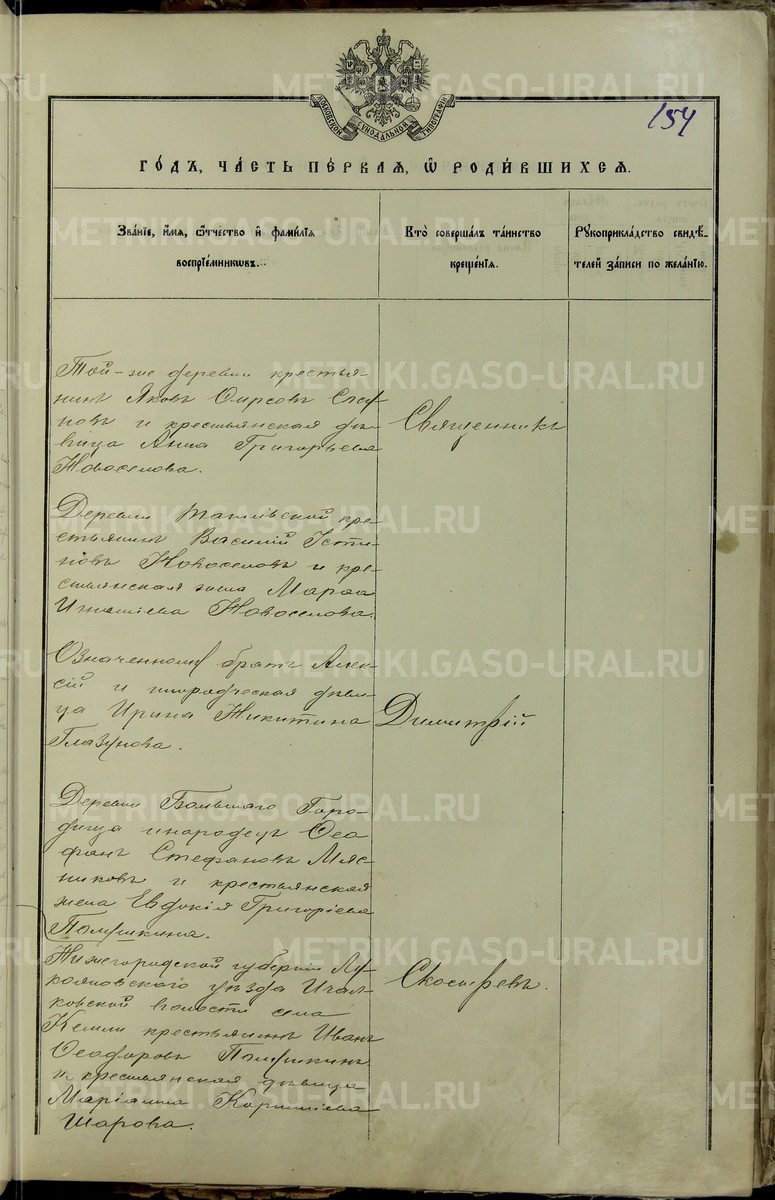 154
МОСКОВСКОЙ СѴНОДАЛЬНОЙ ТИПОГРАФІИ
ГО́ДЪ, ЧА́СТЬ ПЕ́РВАѦ, Ѡ҆ РОДИ́ВШИХСѦ.
Зва́нїе, и҆́мѧ, ѻ҆́тчество и҆ фами́лїѧ
воспрїе́мникѡвъ.
Кто̀ соверша́лъ та́инство
креще́нїѧ.
Рꙋкоприкла́дство свидѣ́-
телей за́писи по жела́нїю.
Той-же деревни крестья-
нинъ Яковъ
новъ и крестьянская дѣ-
вица Анна Григорьева
Новоселова.
Священникъ
Деревни кре-
стьянинъ Василій Усти-
новъ Новоселовъ и кре-
стьянская жена Марѳа
Игнатіева Новоселова.
Означенному братъ Алек-
сій и инородческая дѣви-
ца Ирина Никитина
Глазунова.
Димитрій
Деревни Большаго Горо-
дища инородецъ Ѳео-
фанъ Стефановъ Мяс-
никовъ и крестьянская
жена Евдокія Григоріева
Полушкина.
Нижегородской губерніи Лу-
кояновскаго уѣзда Ичал-
ковской волости села
Кемли крестьянинъ Иванъ
Ѳеодоровъ Полушкинъ
и крестьянская дѣвица
Маріанна Корниліева
Шарова.
Скосыревъ.
METRIKI.GASO-URAL.RU